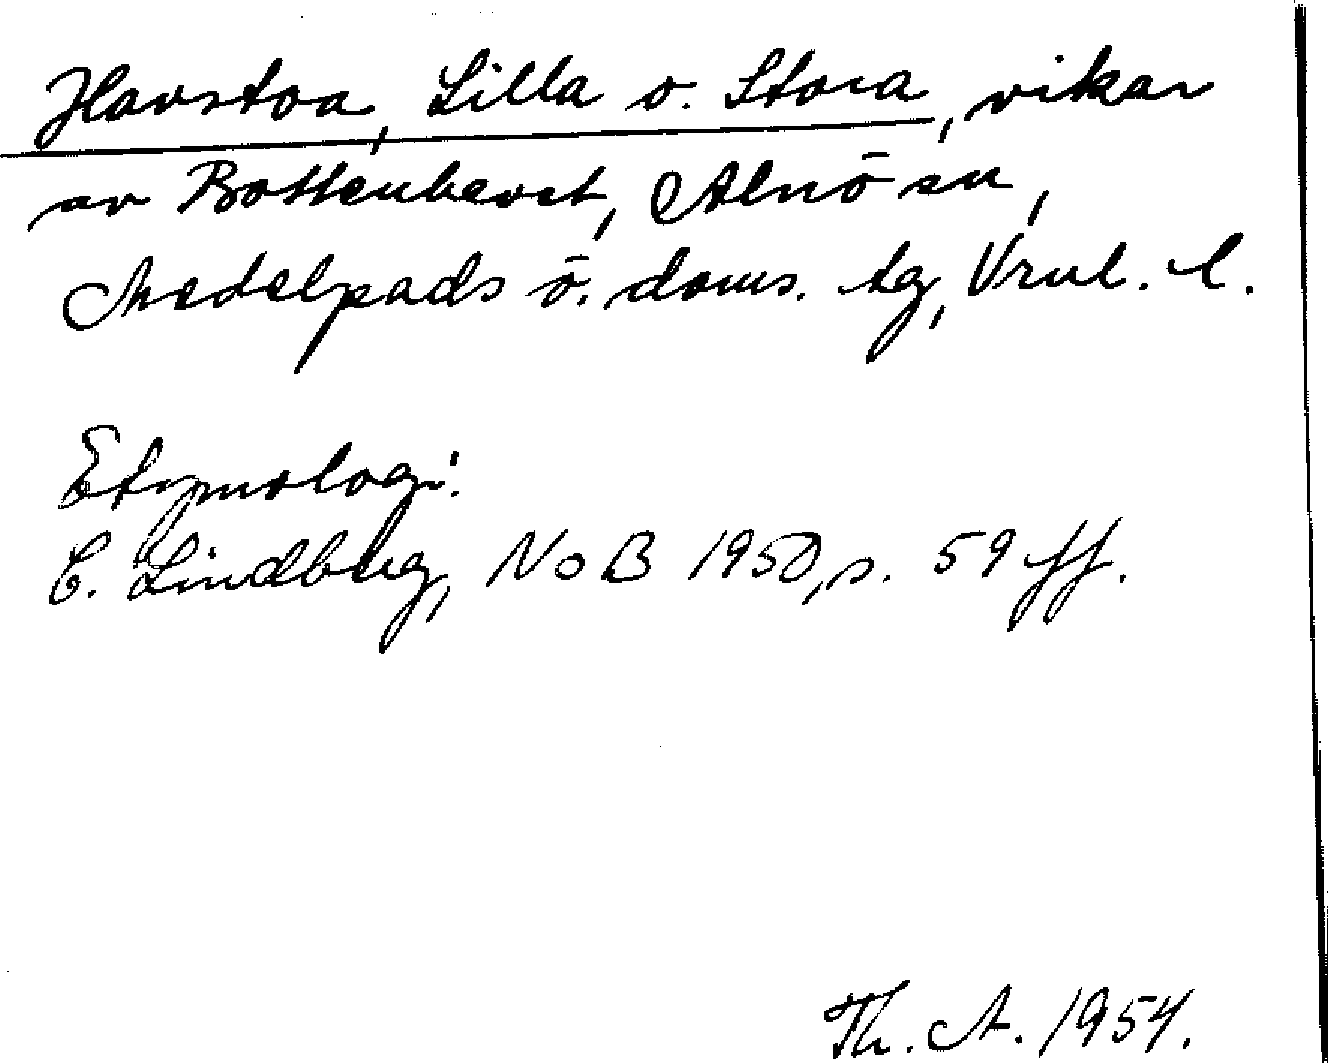 Havstoa, Lilla o. Stora, vikar
av Bottenhavet, Alnö sn,
Medelpads ö. doms. tg, Vrnl. l.
Etymologi:
C. Lindberg, NoB 1950, s. 59 ff.
Th. A. 1954.